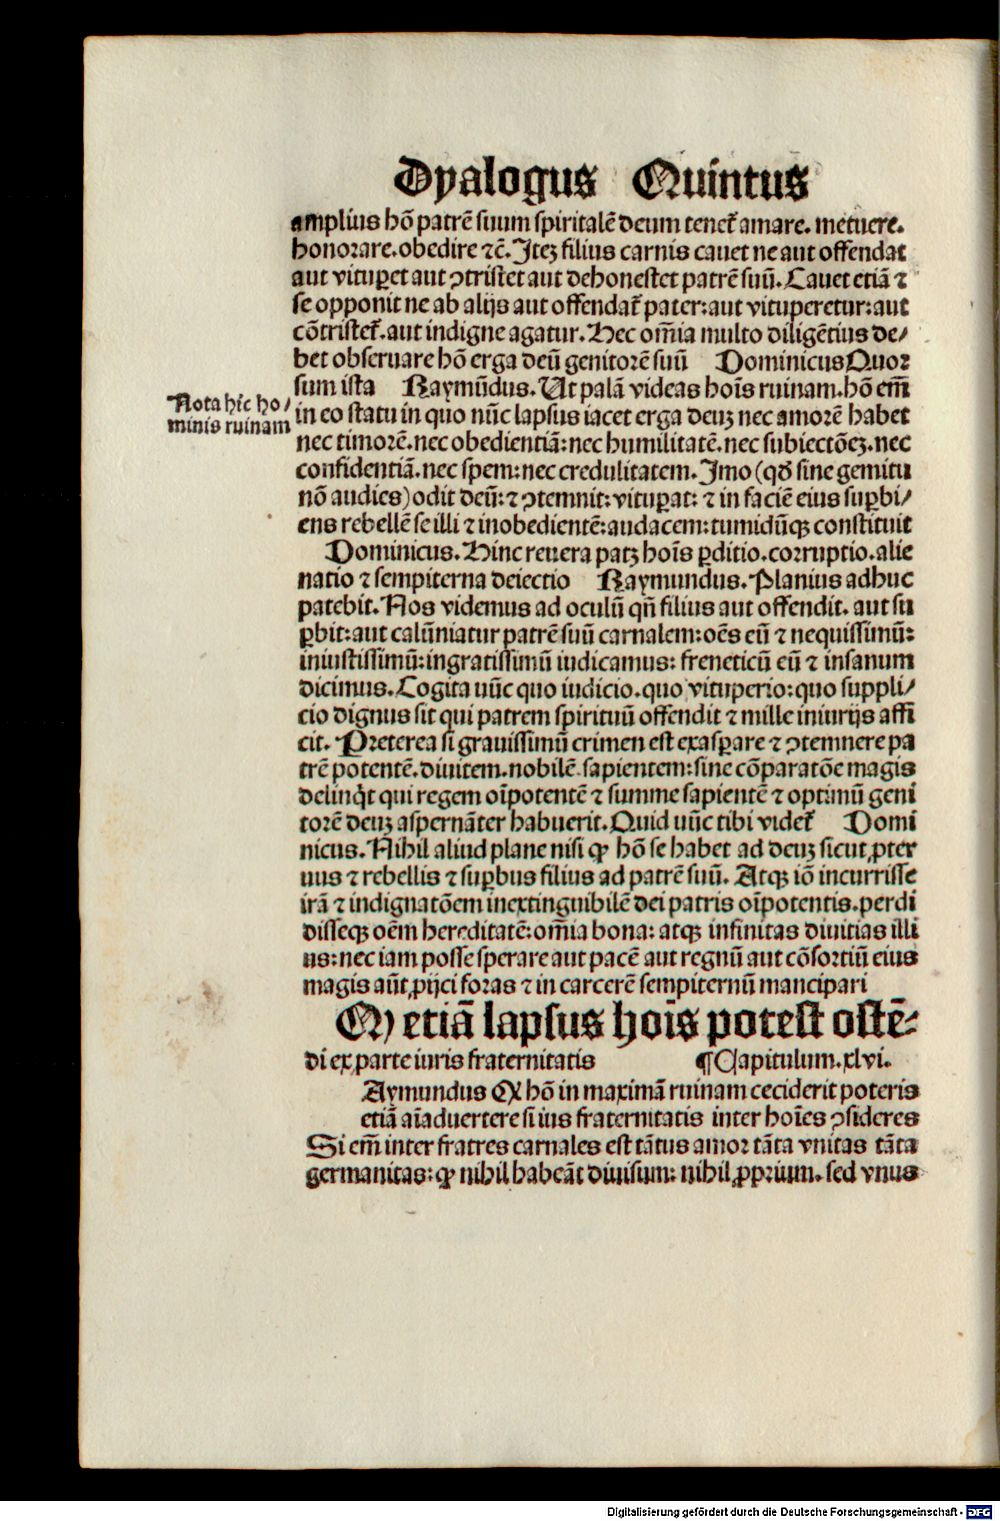 Dyalogus Quintus
amplius hō patrē suum spiritalē deum tenet᷑ amare. metuere.
honorare. obedire ⁊c̄. Itez filius carnis cauet ne aut offendat
aut vituꝑet aut ꝯtristet aut dehonestet patrē suū. Cauet etiā ⁊
se opponit ne ab alijs aut offendat᷑ pater: aut vituperetur: aut
cōtristet᷑. aut indigne agatur. Hec om̄ia multo diligētius de/
bet obseruare hō erga deū genitorē suū Dominicus Quor
sum ista Raymūdus. Ut palā videas hoīs ruinam. hō em̄
Nota hīc ho/
minis ruinam
in eo statu in quo nūc lapsus iacet erga deuꝫ nec amorē habet
nec timorē. nec obedientiā: nec humilitatē. nec subiectōeꝫ. nec
confidentiā. nec spem: nec credulitatem. Imo (qd̄ sine gemitu
nō audies) odit deū: ⁊ ꝯtemnit: vituꝑat: ⁊ in faciē eius suꝑbi/
ens rebellē se illi ⁊ inobedientē: audacem: tumidūqꝫ constituit
Dominicus. Hinc reuera patꝫ hoīs ꝑditio. corruptio. alie
natio ⁊ sempiterna deiectio Raymundus. Planius adhuc
patebit. Nos videmus ad oculū qn̄ filius aut offendit. aut su
ꝑbit: aut calūniatur patrē suū carnalem: oēs eū ⁊ nequissimū:
iniustissimū: ingratissimū iudicamus: freneticū eū ⁊ insanum
dicimus. Cogita nūc quo iudicio. quo vituperio: quo suppli/
cio dignus sit qui patrem spirituū offendit ⁊ mille iniurijs affi
cit. Preterea si grauissimū crimen est exasꝑare ⁊ ꝯtemnere pa
trē potentē. diuitem. nobilē. sapientem: sine cōparatōe magis
delinq̇t qui regem oīpotentē ⁊ summe sapientē ⁊ optimū geni
torē deuꝫ aspernāter habuerit. Quid nūc tibi videt᷑ Domi
nicus. Nihil aliud plane nisi ꝙ hō se habet ad deuꝫ sicut ꝓter
uus ⁊ rebellis ⁊ suꝑbus filius ad patrē suū. Atqꝫ iō incurrisse
irā ⁊ indignatōem inextinguibilē dei patris oīpotentis. perdi
disseqꝫ oēm hereditatē: om̄ia bona: atqꝫ infinitas diuitias illi
us: nec iam posse sperare aut pacē aut regnū aut cōsortiū eius
magis aūt ꝓijci foras ⁊ in carcerē sempiternū mancipari
Q etiā lapsus hoīs potest ostē-
di ex parte iuris fraternitatis ¶ Capitulum. xlvi.
Aymundus Q hō in maximā ruinam ceciderit poteris
etiā aīaduertere si ius fraternitatis inter hoīes ꝯsideres
Si em̄ inter fratres carnales est tātus amor tāta vnitas tāta
germanitas: ꝙ nihil habeāt diuisum: nihil ꝓprium. sed vnus
Digitalisierung gefördert durch die Deutsche Forschungsgemeinschaft - DFG